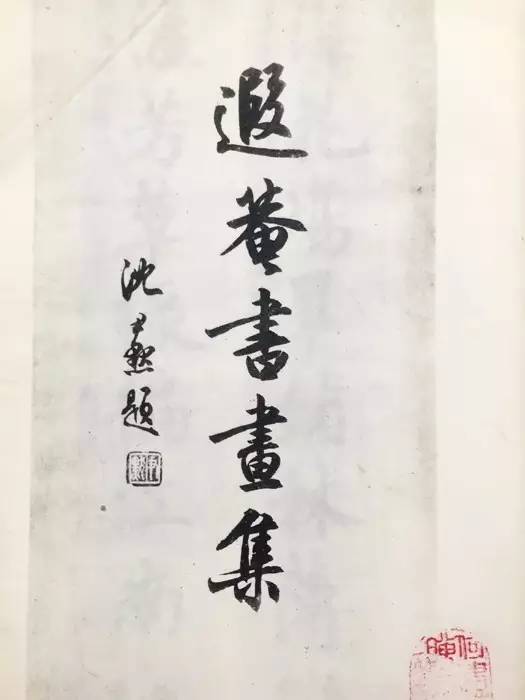 遐菴書畫集
沈尹默題